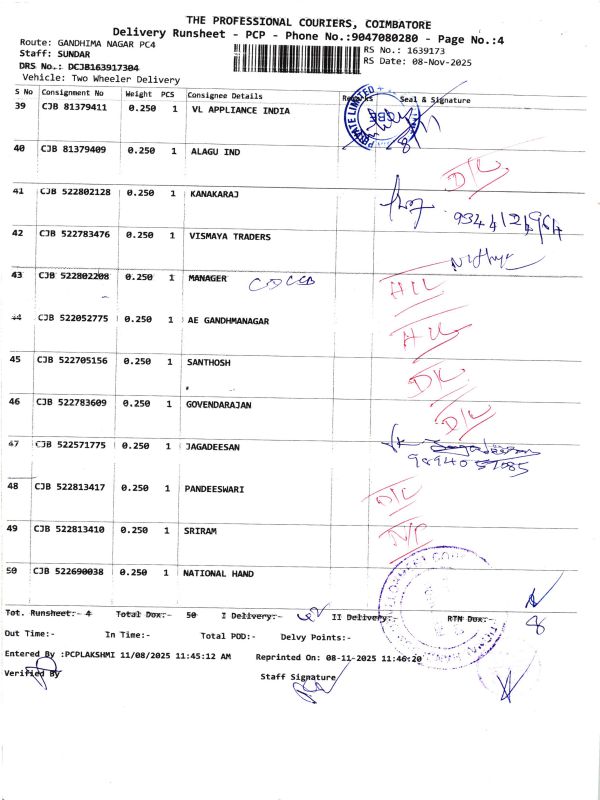 THE PROFESSIONAL COURIERS, COIMBATORE
Delivery Runsheet - PCP - Phone No.:9047080280 - Page No.:4
Route: GANDHIMA NAGAR PC4
Staff: SUNDAR
RS No.: 1639173
DRS No.: DCJB163917304
RS Date: 08-Nov-2025
Vehicle: Two Wheeler Delivery
S No Consignment No Weight PCS Consignee Details Remarks Seal & Signature
39 CJB 81379411 0.250 1 VL APPLIANCE INDIA
PRIVATE LIMITED
8/11
40 CJB 81379409 0.250 1 ALAGU IND
D/L
41 CJB 522802128 0.250 1 KANAKARAJ
9344124964
42 CJB 522783476 0.250 1 VISMAYA TRADERS
Nithya
43 CJB 522802208 0.250 1 MANAGER
44 CJB 522052775 0.250 1 AE GANDHMANAGAR
45 CJB 522705156 0.250 1 SANTHOSH
D/L
46 CJB 522783609 0.250 1 GOVENDARAJAN
D/L
47 CJB 522571775 0.250 1 JAGADEESAN
Jagadeesan
48 CJB 522813417 0.250 1 PANDEESWARI
D/L
49 CJB 522813410 0.250 1 SRIRAM
N/P
50 CJB 522690038 0.250 1 NATIONAL HAND
Tot. Runsheet:- 4 Total Dox:- 50 I Delivery:- II Delivery:- RTN Dox:-
8
Out Time:- In Time:- Total POD:- Delvy Points:-
Entered By :PCPLAKSHMI 11/08/2025 11:45:12 AM Reprinted On: 08-11-2025 11:46:20
Verified By Staff Signature